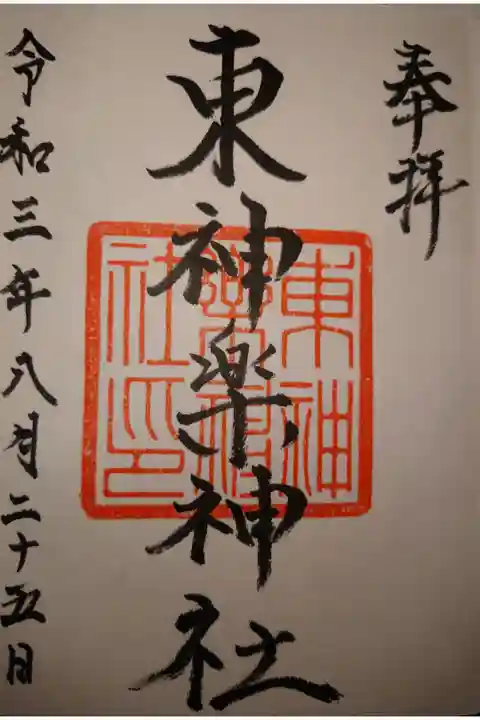 奉拝
東神楽神社
東神
樂神
社印
令和三年八月二十五日